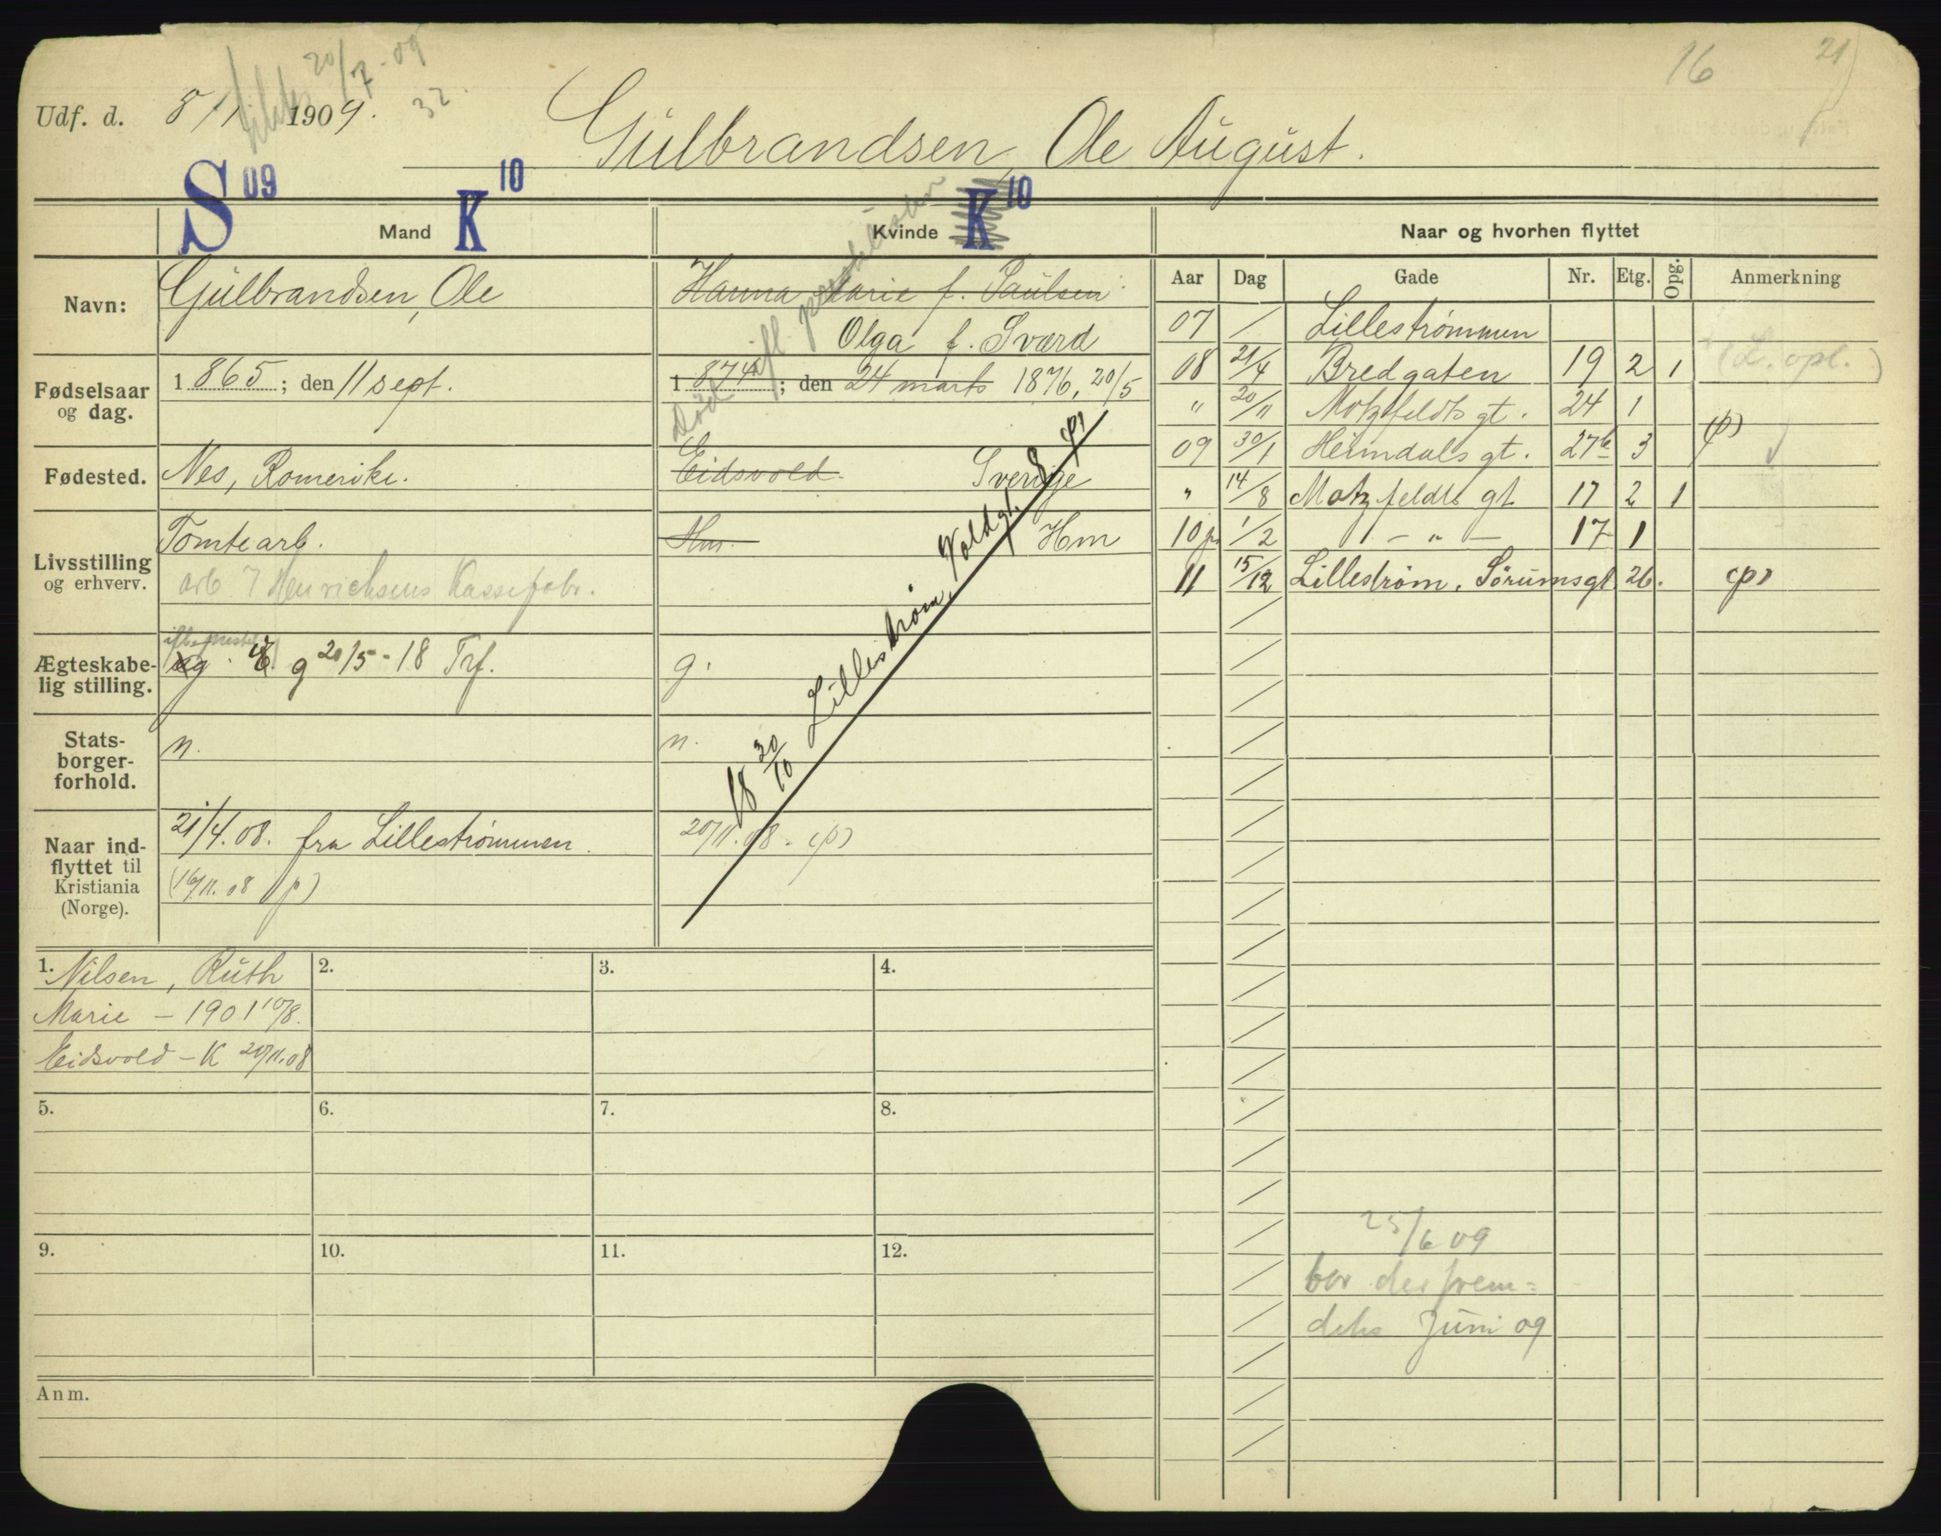 16 21
20/7-09
32.
Udf. d. 8/1 1909.
Gulbrandsen, Ole August.
S 09 Mand K 10 Kvinde K 10 Naar og hvorhen flyttet
Aar Dag Gade Nr. Etg. Opg. Anmerkning
Navn: Gulbrandsen, Ole
Hanna Marie f. Paulsen
Olga f. Sværd
Fødselsaar og dag. 1865; den 11 sept.
1874; den 24 marts 1876, 20/5
Død ifl.
Fødested. Nes, Romerike.
Eidsvold. Sverige
Livsstilling og erhverv. Tomtearb.
arb. Henrichsens Kassefabr.
Hm. Hm
Ægteskabelig stilling. g 20/5-18 Trf.
g.
Statsborgerforhold. n.
n.
Naar indflyttet til Kristiania (Norge). 21/4.08. fra Lillestrømmen.
(16/11.08 p)
20/11.08. (p)
18 30/10 Lillestrøm, Voldgt. 8 (p)
07 / Lillestrømmen
08 21/4 Bredgaten 19 2 1 (L. opl.)
" 20/11 Motzfeldts gt. 24 1
09 30/1 Heimdals gt. 27b 3 (p)
" 14/8 Motzfeldts gt 17 2 1
10 p. 1/2 1 - " - 17 1
11 15/12 Lillestrøm, Sørumsgt 26. (p)
1. Nilsen, Ruth
Marie - 1901 10/8.
Eidsvold - K 20/11.08
2.
3.
4.
5.
6.
7.
8.
9.
10.
11.
12.
25/6 09
bor der frem=
deles Juni 09
Anm.